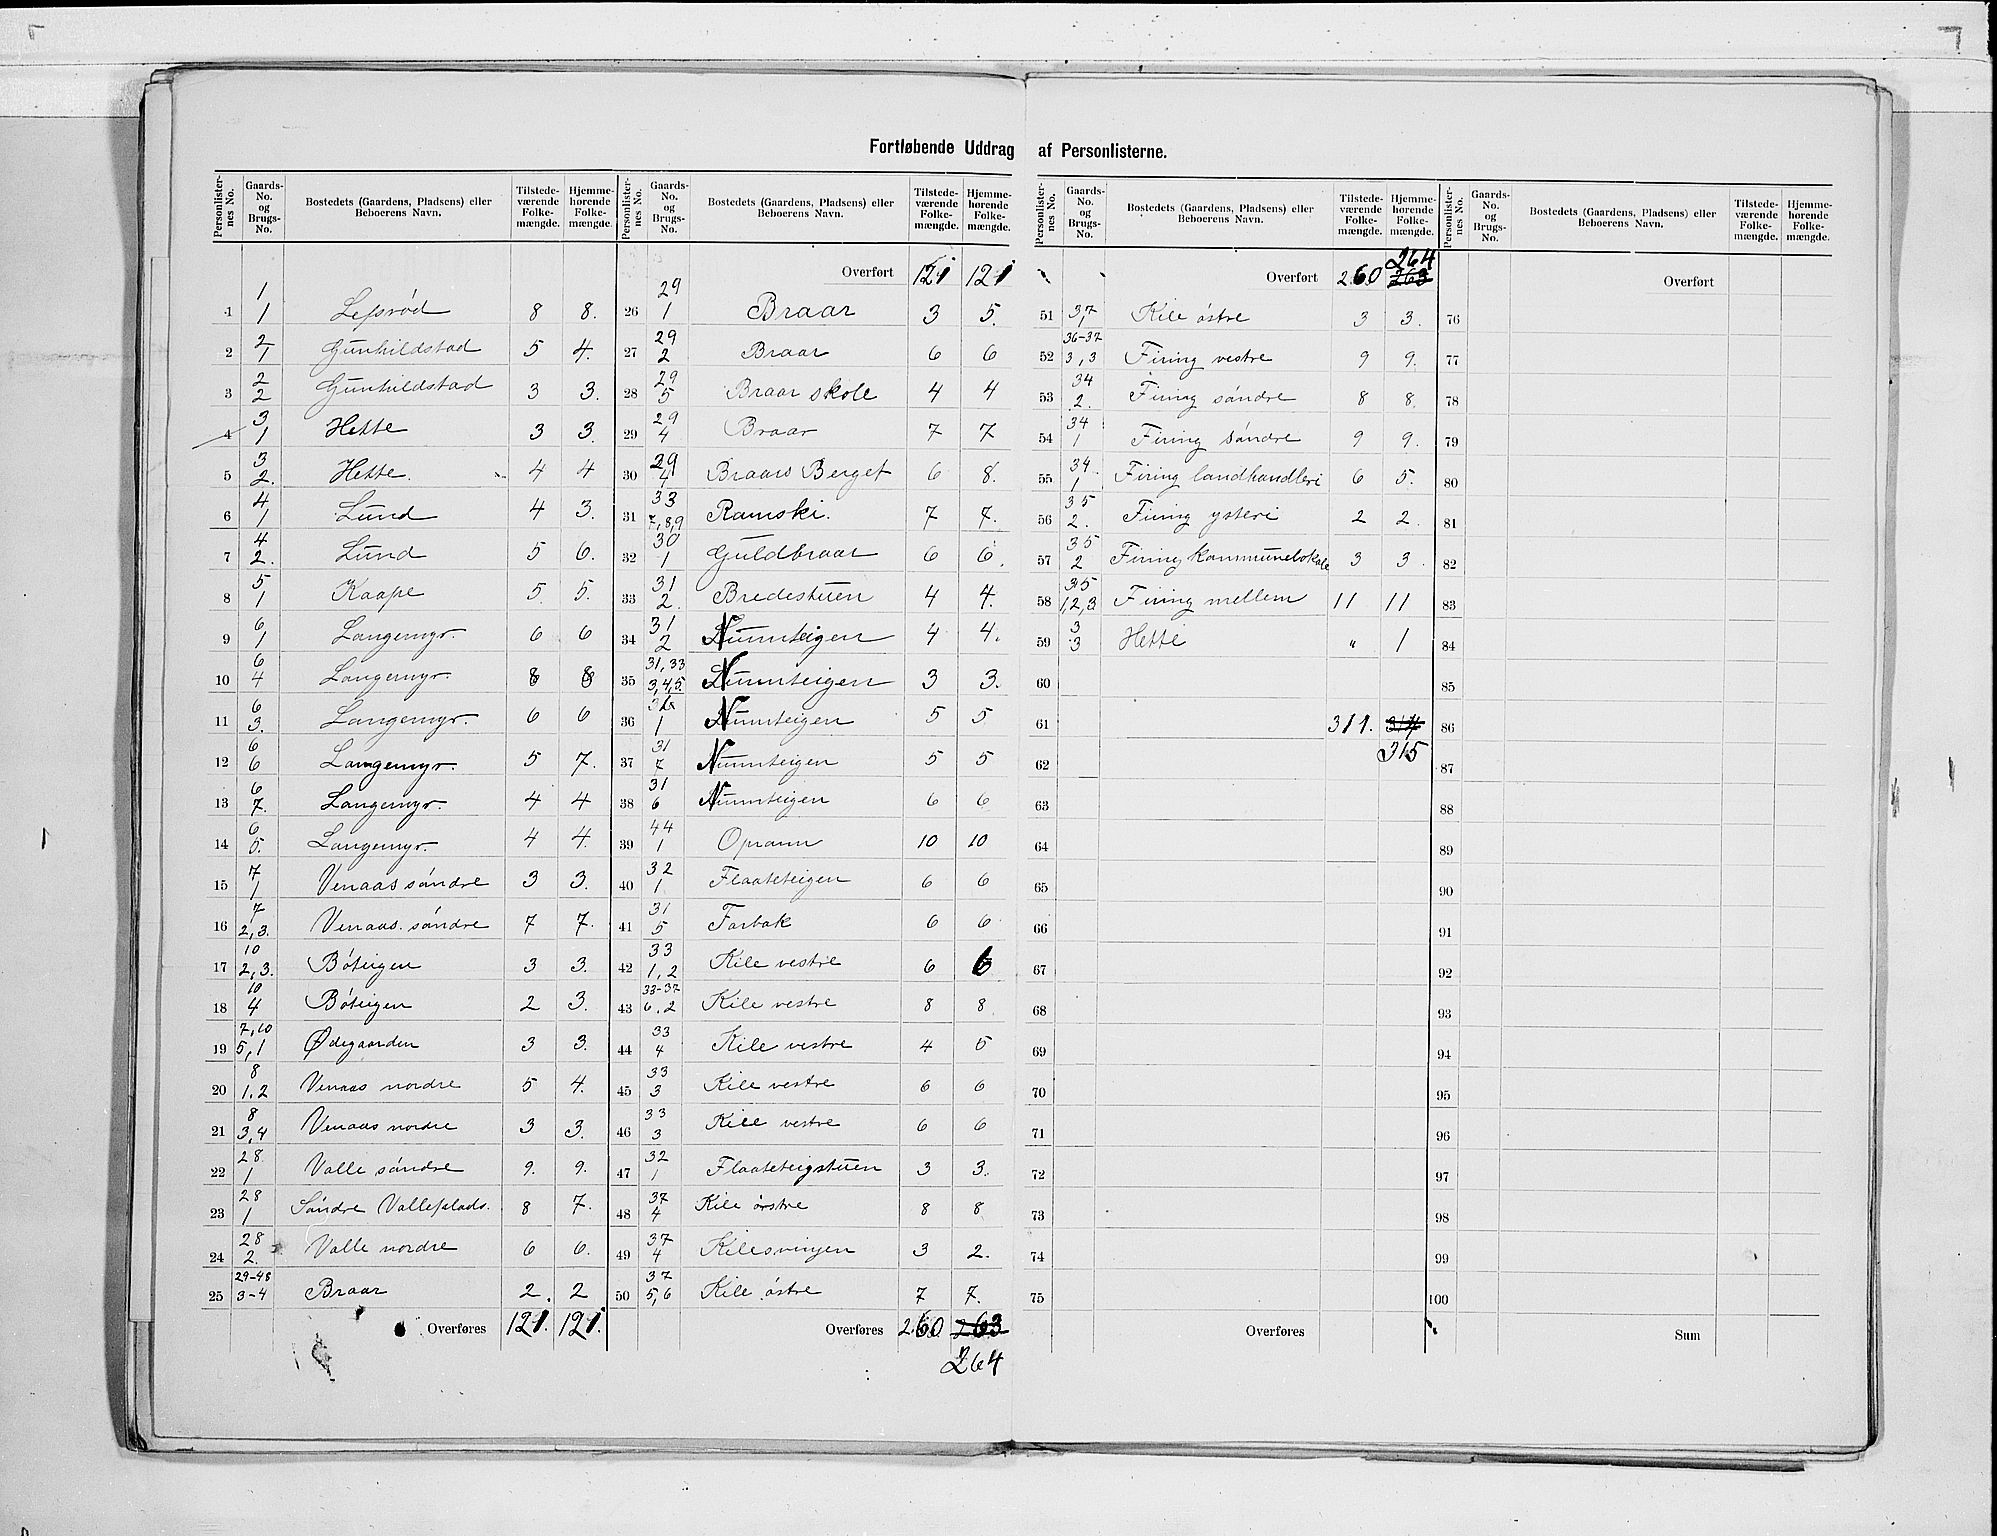 Fortløbende Uddrag af Personlisterne.
Personlister-nes No. | Gaards-No. og Brugs-No. | Bostedets (Gaardens, Pladsens) eller Beboerens Navn. | Tilstede-værende Folke-mængde. | Hjemme-hørende Folke-mængde.
1 | 1 / 1 | Lefsrød | 8 | 8.
2 | 2 / 1 | Gunhildstad | 5 | 4.
3 | 2 / 2 | Gunhildstad | 3 | 3.
4 | 3 / 1 | Hette | 3 | 3.
5 | 3 / 2. | Hette. | 4 | 4
6 | 4 / 1 | Lund | 4 | 3.
7 | 4 / 2. | Lund | 5 | 6.
8 | 5 / 1 | Kaape | 5. | 5.
9 | 6 / 1 | Langemyr. | 6 | 6
10 | 6 / 4 | Langemyr. | 8 | 8
11 | 6 / 3. | Langemyr. | 6 | 6
12 | 6 / 6 | Langemyr. | 5 | 7.
13 | 6 / 7. | Langemyr. | 4 | 4
14 | 6 / 5. | Langemyr. | 4 | 4.
15 | 7 / 1 | Venaas søndre | 3 | 3.
16 | 7 / 2,3. | Venaas. søndre | 7 | 7.
17 | 10 / 2,3. | Bøteigen | 3 | 3.
18 | 10 / 4 | Bøteigen | 2 | 3.
19 | 7,10 / 5,1 | Ødegaarden | 3 | 3.
20 | 8 / 1.2 | Venaas nordre | 5 | 4.
21 | 8 / 3,4 | Venaas nordre | 3 | 3.
22 | 28. / 1 | Valle søndre | 9. | 9.
23 | 28 / 1 | Søndre Valleplads. | 8 | 7.
24 | 28 / 2. | Valle nordre | 6 | 6.
25 | 29-48 / 3-4 | Braar | 2. | 2
Overføres | 121. | 121.
Personlister-nes No. | Gaards-No. og Brugs-No. | Bostedets (Gaardens, Pladsens) eller Beboerens Navn. | Tilstede-værende Folke-mængde. | Hjemme-hørende Folke-mængde.
Overført | 121 | 121
26 | 29 / 1 | Braar | 3 | 5.
27 | 29 / 2 | Braar | 6 | 6
28 | 29 / 5 | Braar skole | 4 | 4
29 | 29 / 4 | Braar | 7 | 7
30 | 29 / 4 | Braars Berget | 6 | 8.
31 | 33 / 7,8,9 | Ramski. | 7 | 7.
32 | 30 / 1 | Guldbraar | 6 | 6.
33 | 31 / 2. | Bredestuen | 4 | 4.
34 | 31 / 2 | Nunnteigen | 4 | 4.
35 | 31,33 / 3,4,5. | Nunnteigen | 3 | 3.
36 | 1 | Nunnteigen | 5 | 5
37 | 31 / 7 | Nunnteigen | 5 | 5
38 | 31 / 6 | Nunnteigen | 6 | 6
39 | 44 / 1 | Opramn | 10 | 10
40 | 32 / 1 | Flaateteigen | 6 | 6
41 | 31 / 5 | Farbak | 6 | 6
42 | 33 / 1,2 | Kile vestre | 6 | 6
43 | 33-37 / 6,2 | Kile vestre | 8 | 8
44 | 33 / 4 | Kile vestre | 4 | 5
45 | 33 / 3 | Kile vestre | 6 | 6
46 | 33 / 3 | Kile vestre | 6 | 6
47 | 32 / 1 | Flaateteigstuen | 3 | 3.
48 | 37 / 4 | Kile ørstre | 8 | 8
49 | 37 / 4 | Kilesvingen | 3 | 2.
50 | 37 / 5,6 | Kile østre | 7 | 7.
Overføres | 260. | 263
264
Personlister-nes No. | Gaards-No. og Brugs-No. | Bostedets (Gaardens, Pladsens) eller Beboerens Navn. | Tilstede-værende Folke-mængde. | Hjemme-hørende Folke-mængde.
264
Overført | 260 | 263
51 | 37 / 1 | Kile østre | 3 | 3.
52 | 36-37 / 3,3 | Firing vestre | 9 | 9.
53 | 34 / 2. | Firing søndre | 8 | 8.
54 | 34 / 1 | Firing søndre | 9 | 9.
55 | 34. / 1 | Firing landhandleri | 6 | 5.
56 | 35 / 2. | Firing ysteri | 2 | 2.
57 | 35 / 2 | Firing kommunelokale | 3 | 3.
58 | 35 / 1,2,3 | Firing mellem | 11 | 11
59 | 3 / 3 | Hette | " | 1
60
61 | 311. | 314
62 | 315
63
64
65
66
67
68
69
70
71
72
73
74
75
Overføres
Personlister-nes No. | Gaards-No. og Brugs-No. | Bostedets (Gaardens, Pladsens) eller Beboerens Navn. | Tilstede-værende Folke-mængde. | Hjemme-hørende Folke-mængde.
Overført
76
77
78
79
80
81
82
83
84
85
86
87
88
89
90
91
92
93
94
95
96
97
98
99
100
Sum